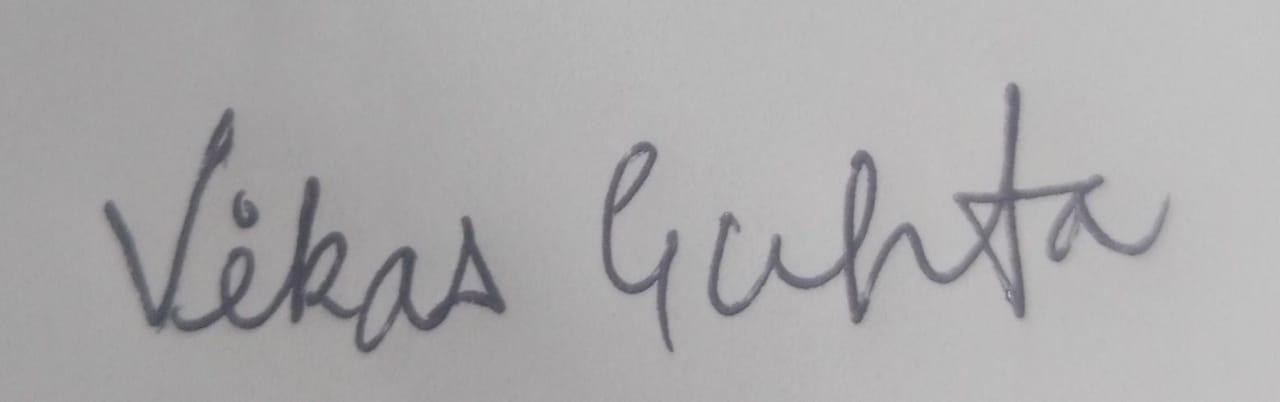 Vikas Guhta